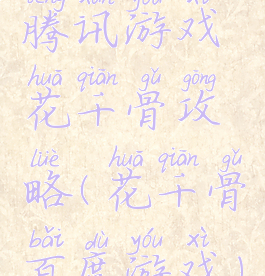 téng xùn yóu xì
腾讯游戏
huā qiān gǔ gōng
花千骨攻
lüè huā qiān gǔ
略(花千骨
bǎi dù yóu xì
百度游戏)